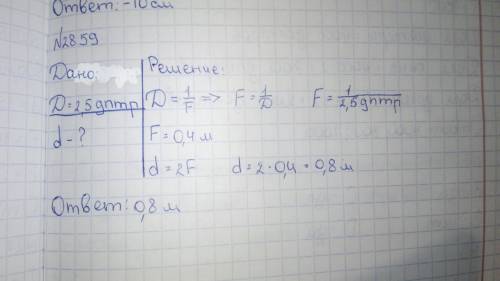 Ответ: -10 см
№2859
Дано:
D = 2,5 дптр
d - ?
Решение:
D = 1/F => F = 1/D F = 1/2,5 дптр
F = 0,4 м
d = 2F d = 2 · 0,4 = 0,8 м
Ответ: 0,8 м